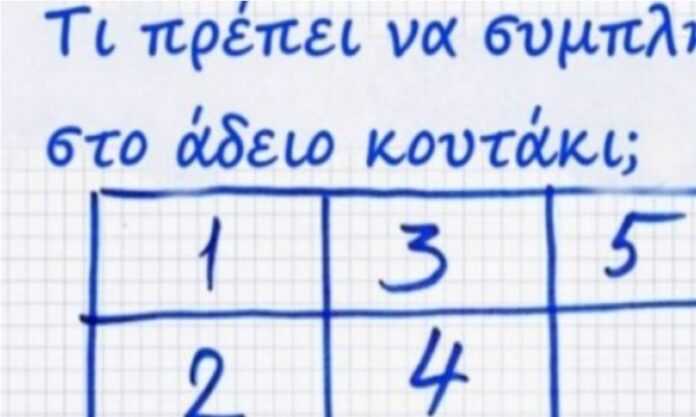 Τι πρέπει να συμπλη
στο άδειο κουτάκι;
1 3 5
2 4